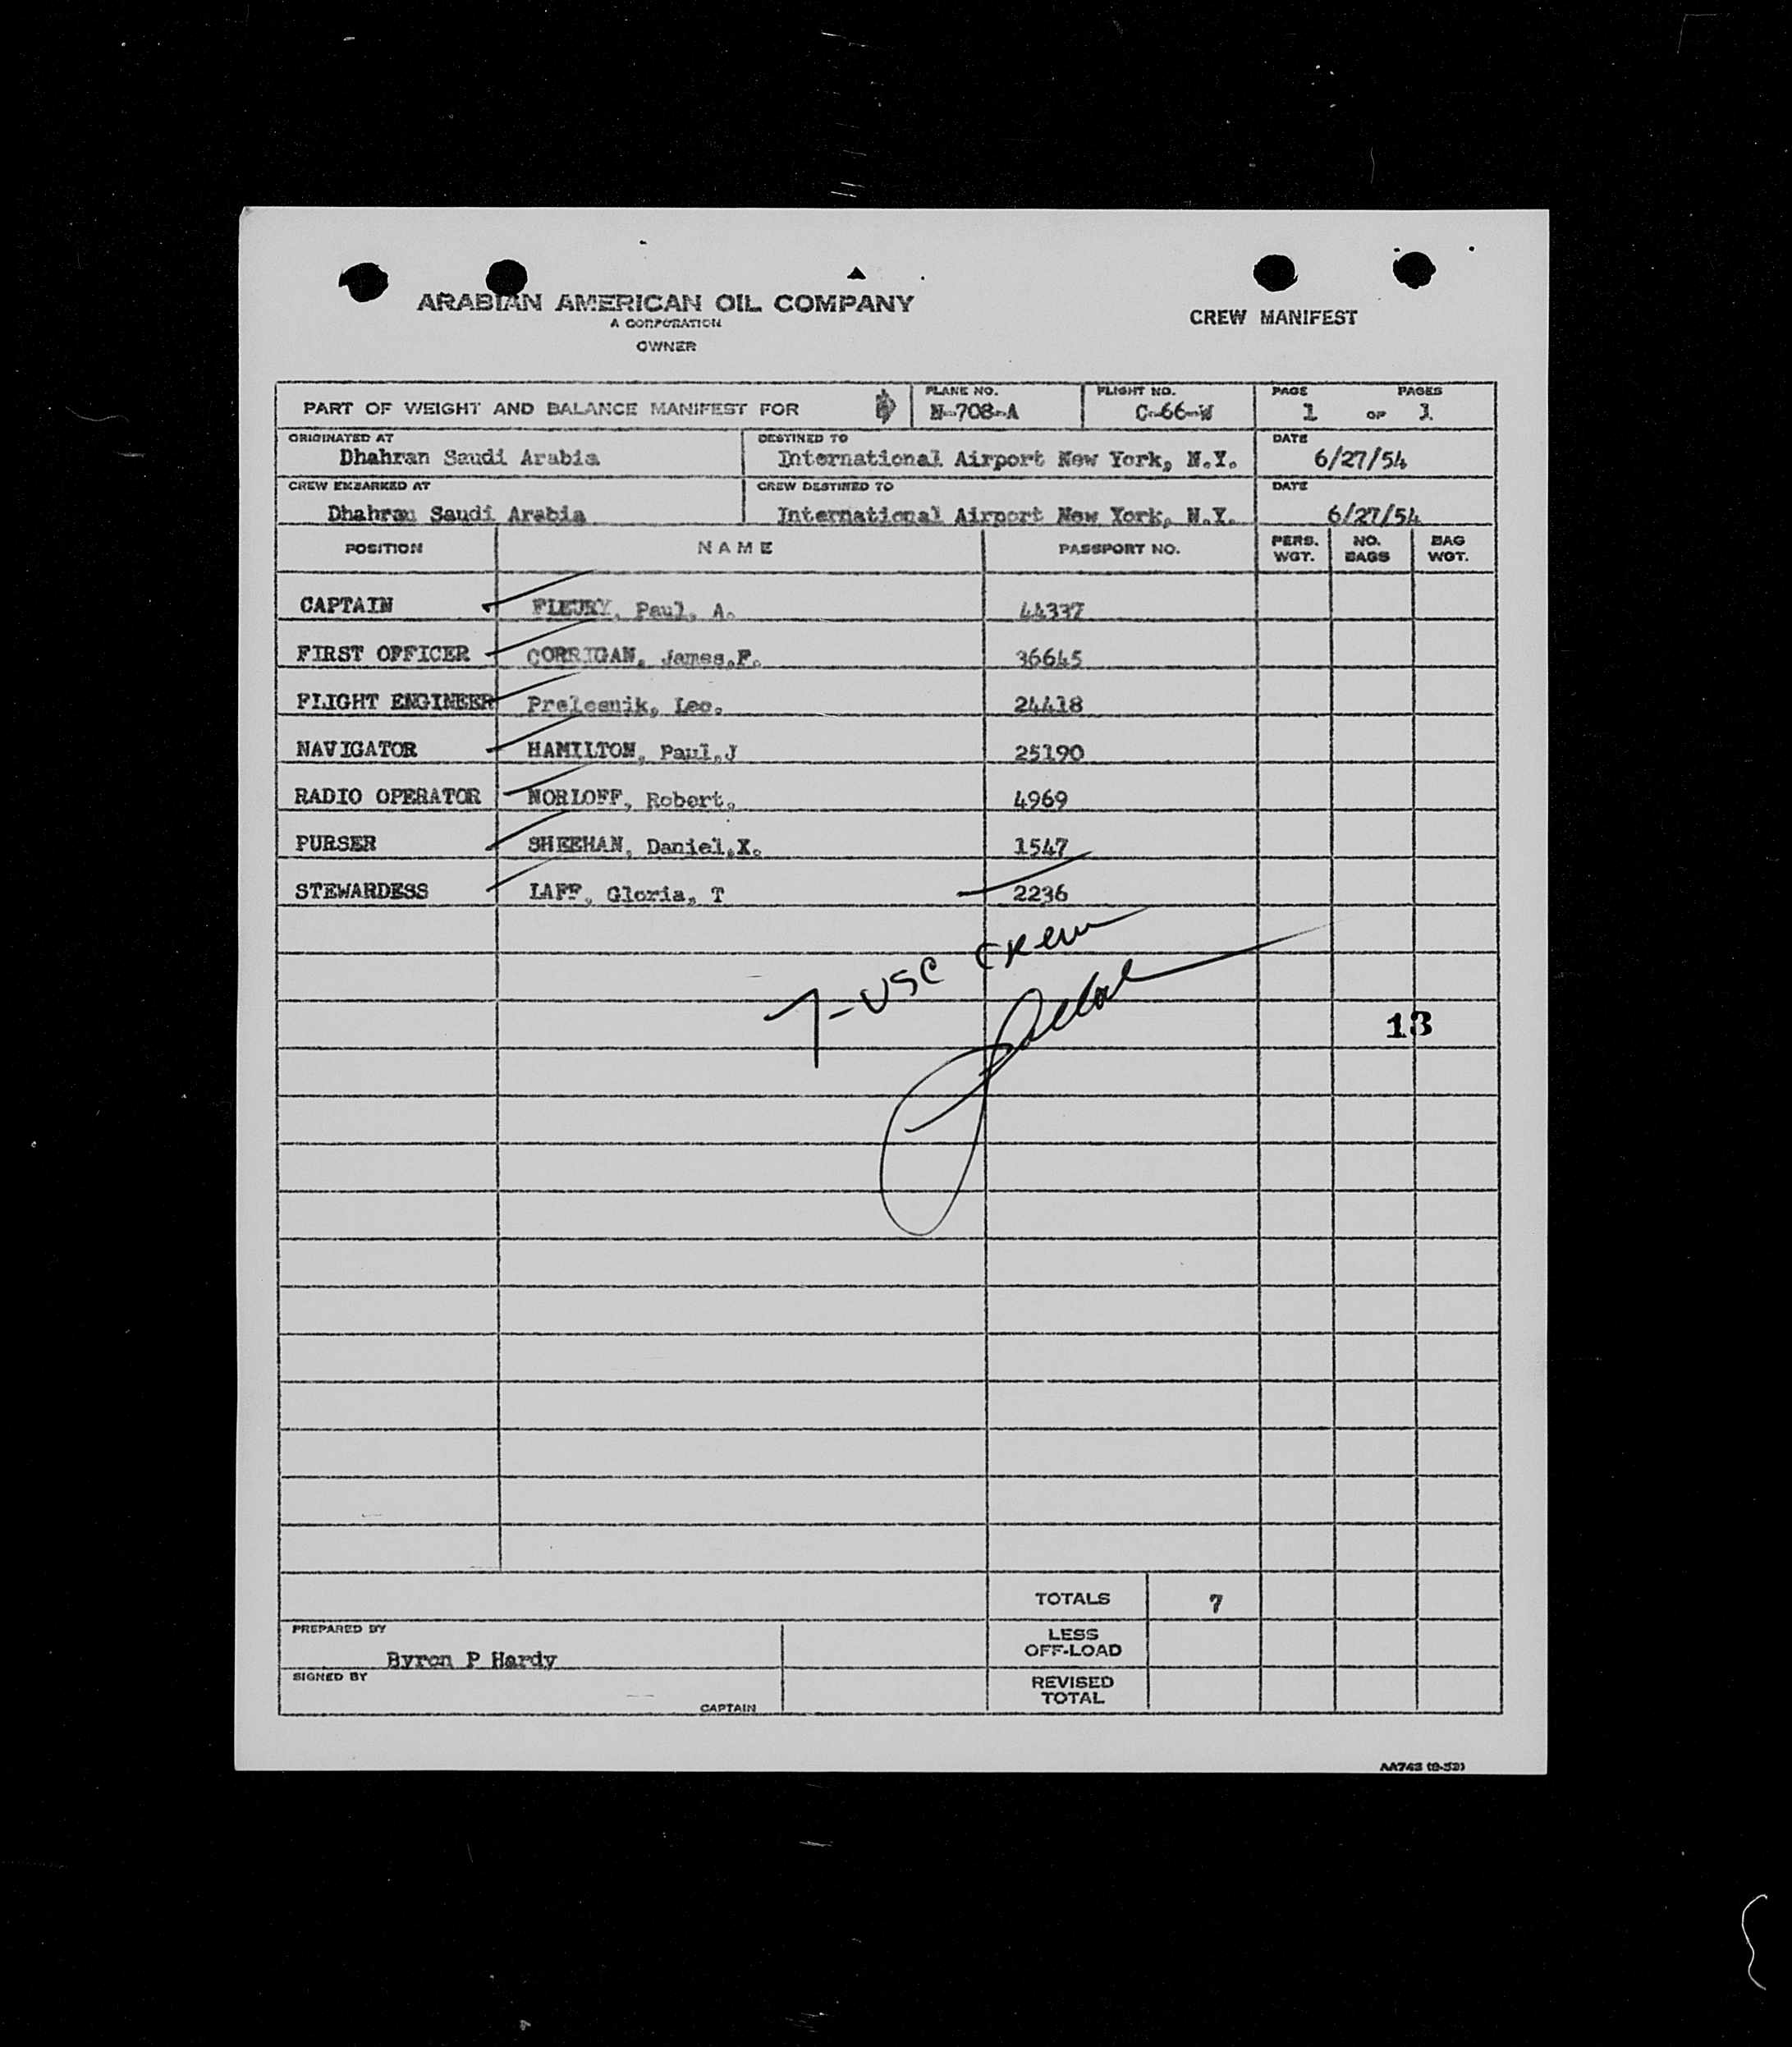 ARABIAN AMERICAN OIL COMPANY
A CORPORATION
OWNER
CREW MANIFEST
PART OF WEIGHT AND BALANCE MANIFEST FOR
PLANE NO.
N-708-A
FLIGHT NO.
C-66-W
PAGE PAGES
1 OF 1
ORIGINATED AT
Dhahran Saudi Arabia
DESTINED TO
International Airport New York, N.Y.
DATE
6/27/54
CREW EMBARKED AT
Dhahran Saudi Arabia
CREW DESTINED TO
International Airport New York, N.Y.
DATE
6/27/54
POSITION NAME PASSPORT NO. PERS. WGT. NO. BAGS BAG WGT.
CAPTAIN FLEURY, Paul, A. 44337
FIRST OFFICER CORRIGAN, James.F. 36645
FLIGHT ENGINEER Prelesnik, Leo. 24418
NAVIGATOR HAMILTON, Paul,J 25190
RADIO OPERATOR NORLOFF, Robert, 4969
PURSER SHEEHAN, Daniel,X. 1547
STEWARDESS LAFF, Gloria, T 2236
7-USC CREW
13
TOTALS 7
PREPARED BY
Byron P Hardy
LESS OFF-LOAD
SIGNED BY
CAPTAIN
REVISED TOTAL